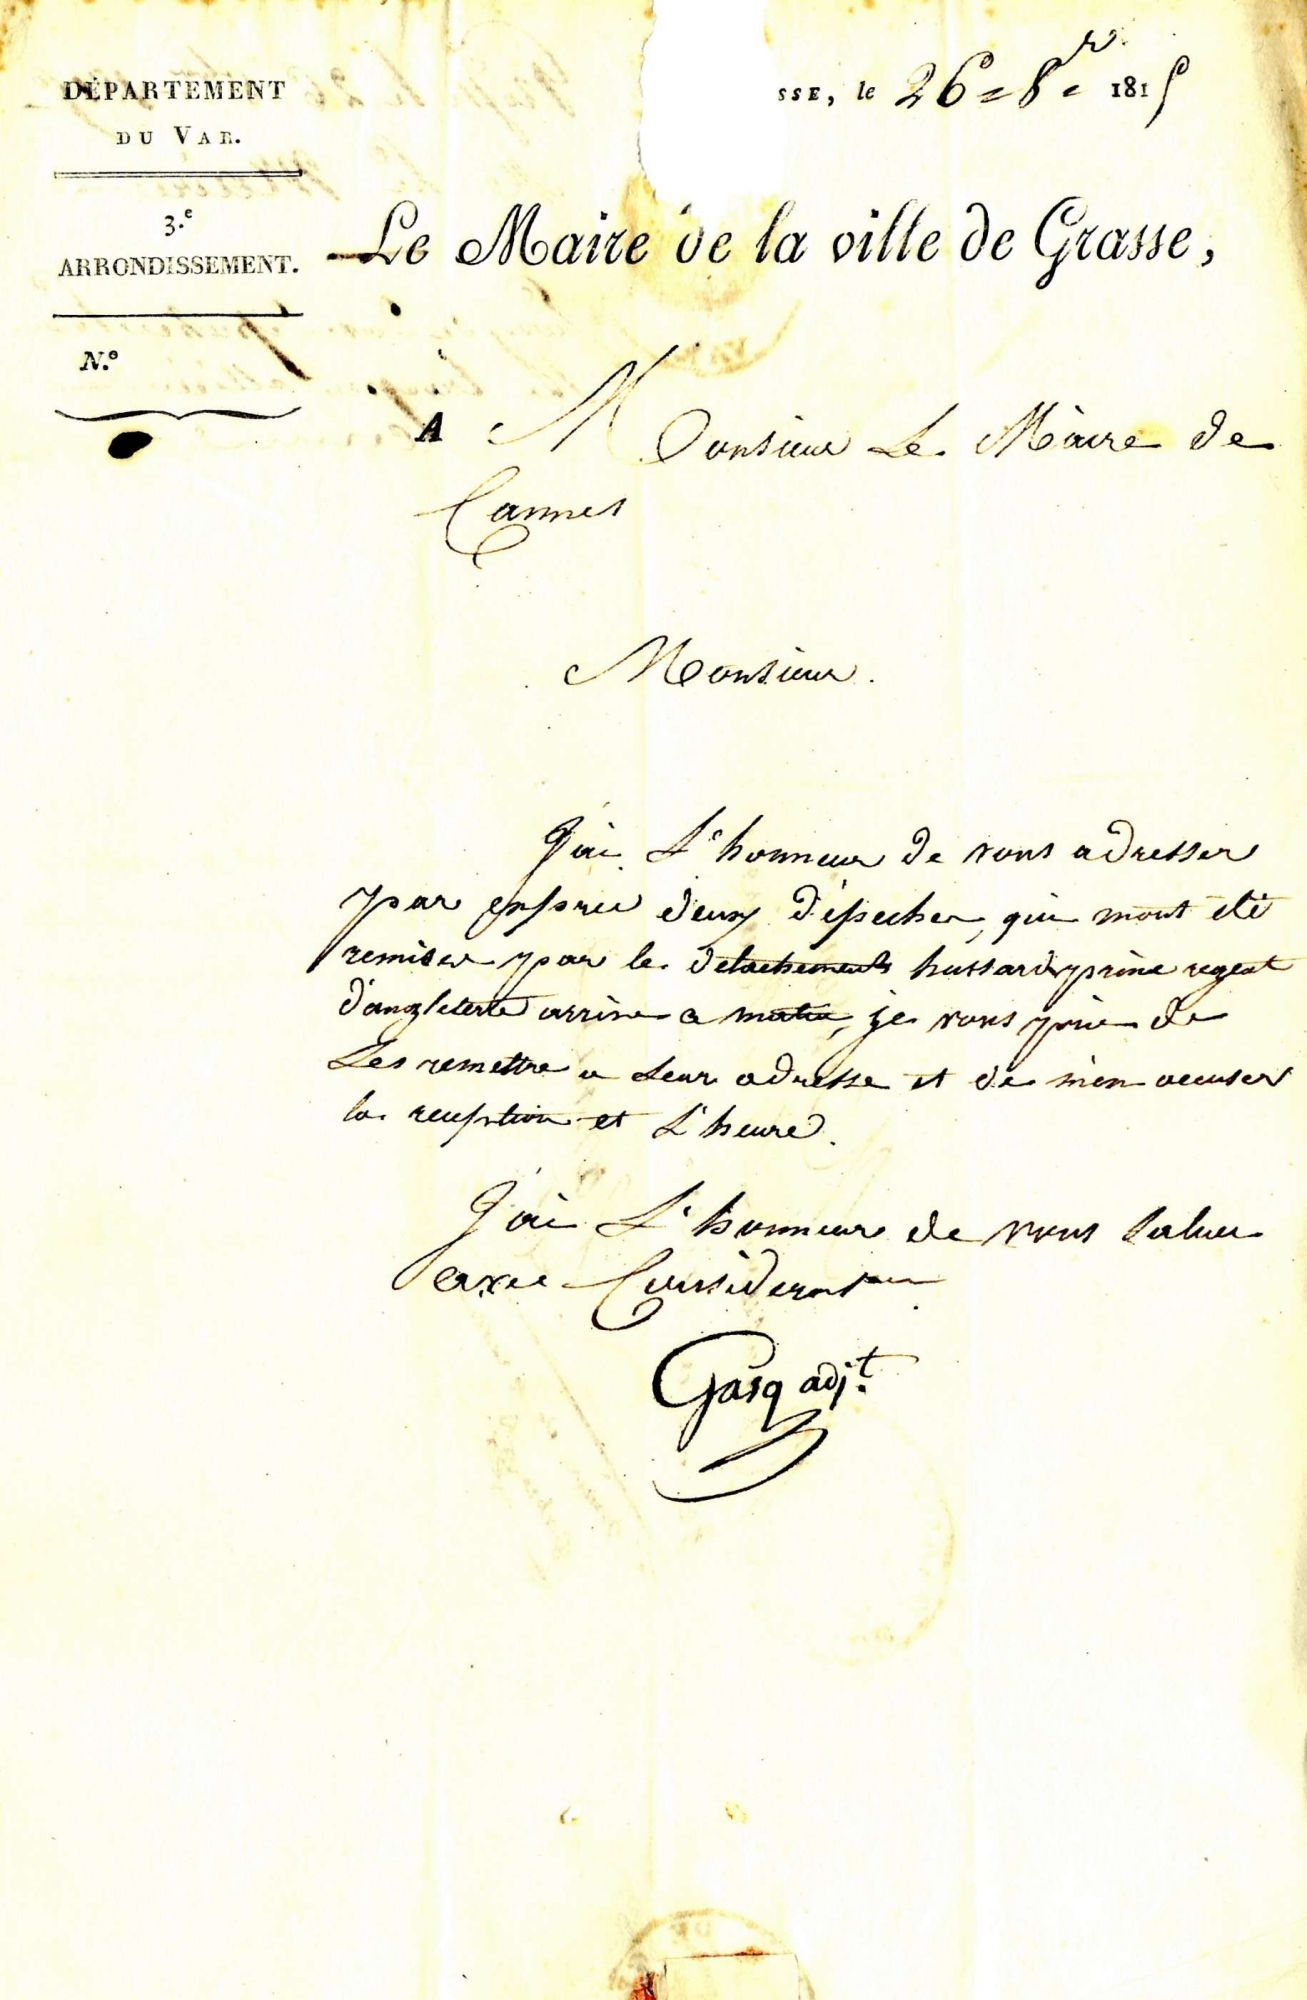 DÉPARTEMENT
DU VAR.
3.e
ARRONDISSEMENT.
N.o
SSE, le 26 = 8.r 1815
Le Maire de la ville de Grasse,
A Monsieur Le Maire de
Cannes
Monsieur.
J'ai L'honneur de vous adresser
par exprès deux dépeches, qui mont été
remises par le detachement hussards prince regent
d'angleterre arrivé ce matin, je vous prie de
Les remettre a Leur adresse et de m'en accuser
la reception et L'heure.
J'ai L'honneur de vous Saluer
avec Consideration
Gasq adj.t